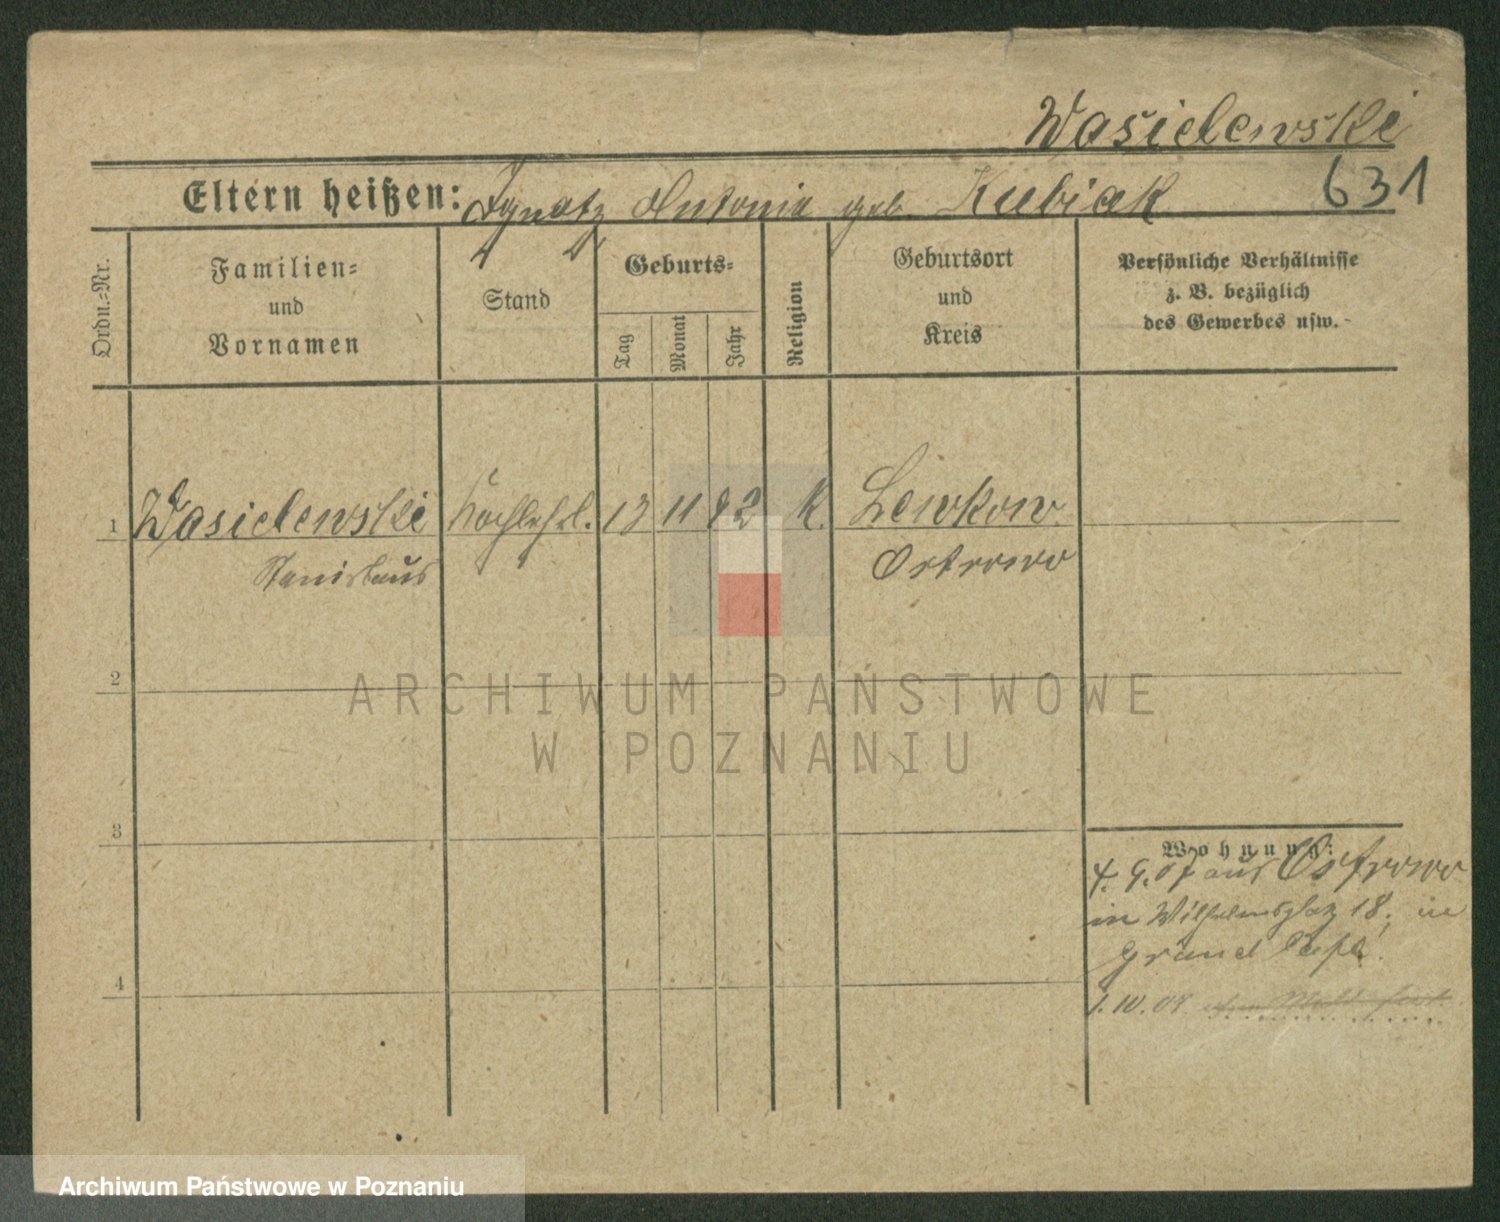 Wasielewski
631
Eltern heißen: Ignatz Antonie geb. Kubiak
Ordn.-Nr.
Familien-
und
Vornamen
Stand
Geburts-
Tag
Monat
Jahr
Religion
Geburtsort
und
Kreis
Persönliche Verhältnisse
z. B. bezüglich
des Gewerbes usw.
1 Wasielewski Kochlehrl. 13 11 92 K. Lewkow
Stanislaus Ostrowo
2
ARCHIWUM PAŃSTWOWE
W POZNANIU
3
Wohnung:
4. 9. 07 aus Ostrowo
in Wilhelmsplatz 18, in
Grand Café.
4
1. 10. 08
Archiwum Państwowe w Poznaniu